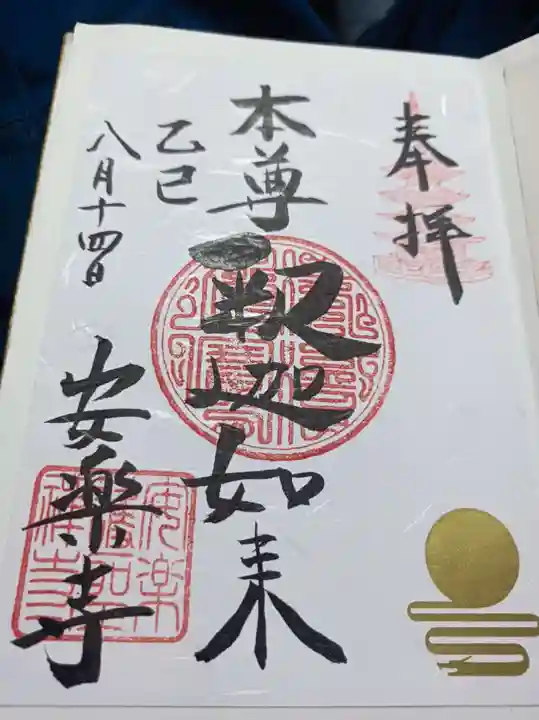 奉拝
本尊
釈迦如来
乙巳
八月十四日
安楽寺